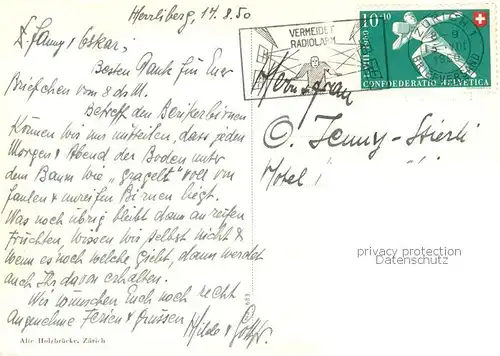 Herrliberg, 14.8.50
L. Fanny & Oskar,
Besten Dank für Euer
Briefchen vom 8 ds M.
Betreff den Berikerbirnen
können wir nur mitteilen, dass jeden
Morgen & Abend der Boden unter
dem Baum wie "gragelt" voll von
faulen & unreifen Birnen liegt.
Was noch übrig bleibt dann an reifen
Früchten, wissen wir selbst nicht &
wenn es noch welche giebt, dann werdet
auch Ihr davon erhalten.
Wir wünschen Euch noch recht
angenehme Ferien & grüssen
Hilde &
Alte Holzbrücke, Zürich
683
VERMEIDET
RADIOLÄRM
10+10
CONFOEDERATIO HELVETICA
ZÜRICH
BRIEFVERSAND
Herr & Frau
O. Jenny-Stierli
Hotel
privacy protection
www.oldthing.de